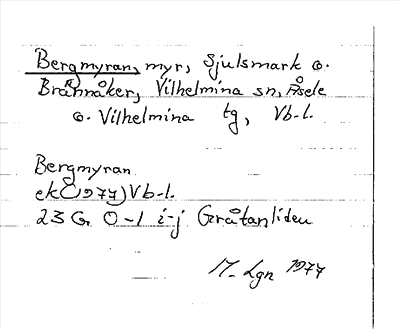 Bergmyran, myr, Sjulsmark o.
Brännåker, Vilhelmina sn, Åsele
o. Vilhelmina tg, Vb-l.
Bergmyran
ek (1977) Vb-l.
23 G 0-1 i-j Gråtanliden
M. Lgn 1977